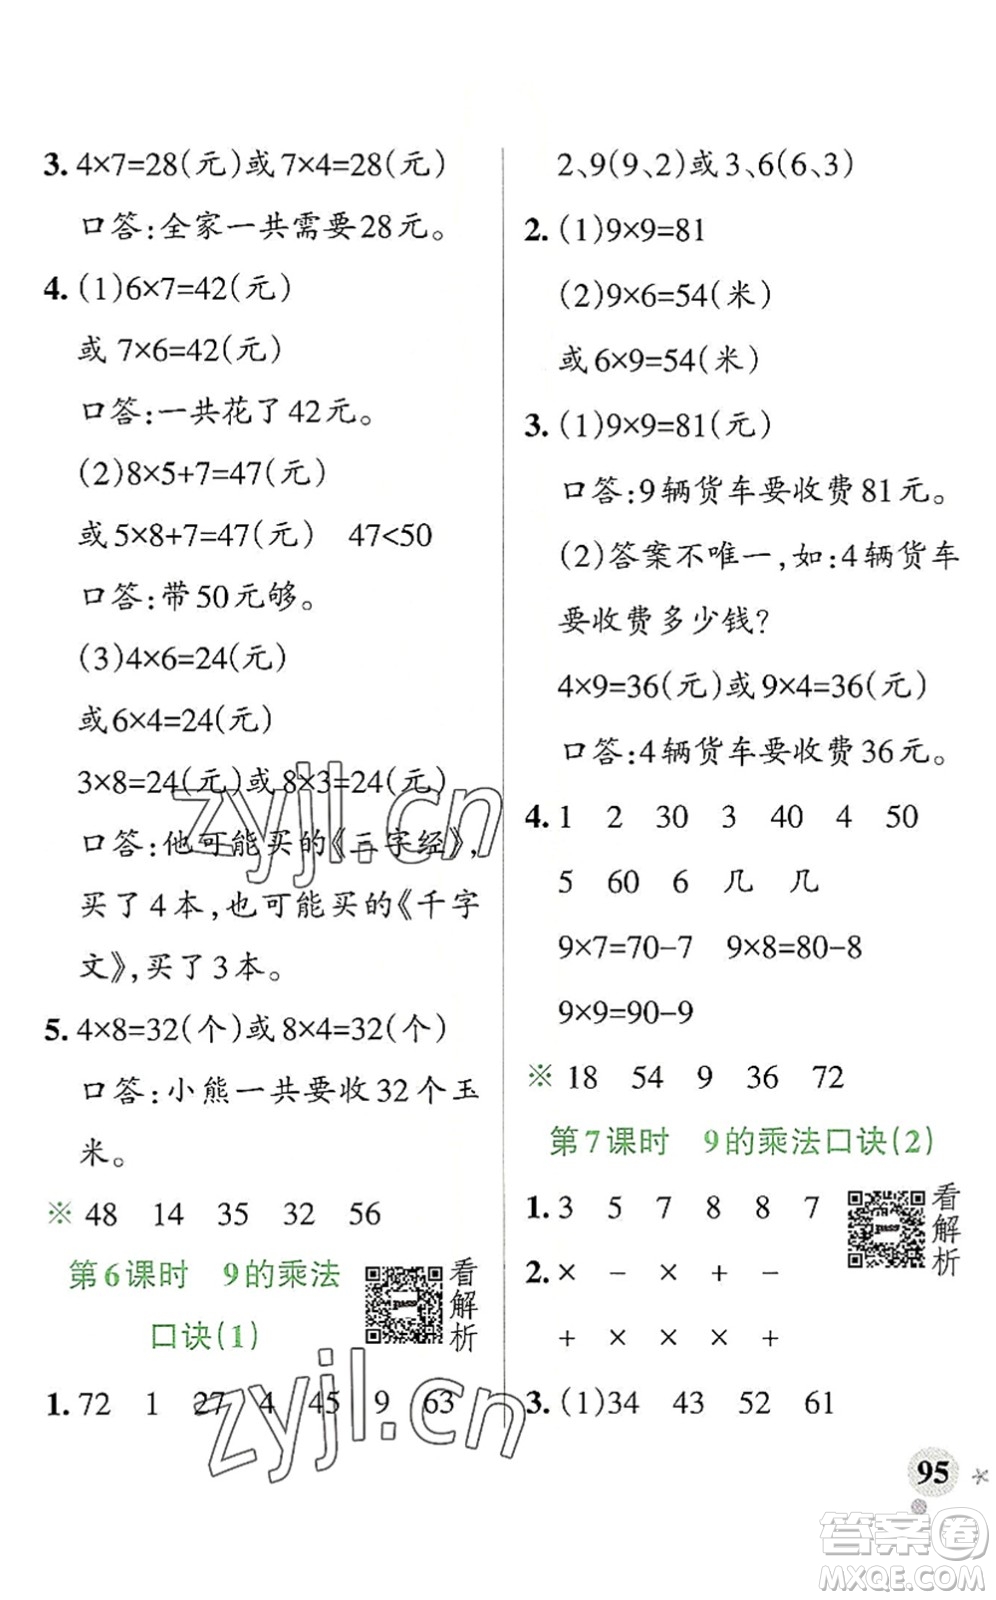 3. 4×7=28(元)或7×4=28(元)
口答:全家一共需要28元。
4. (1)6×7=42(元)
或 7×6=42(元)
口答:一共花了42元。
(2)8×5+7=47(元)
或5×8+7=47(元) 47<50
口答:带50元够。
(3)4×6=24(元)
或6×4=24(元)
3×8=24(元)或8×3=24(元)
口答:他可能买的《三字经》,
买了4本,也可能买的《千字
文》,买了3本。
5. 4×8=32(个)或8×4=32(个)
口答:小熊一共要收32个玉
米。
※ 48 14 35 32 56
第6课时 9的乘法
口诀(1)
看解析
1. 72 1 27 4 45 9 63
2、9(9、2)或3、6(6、3)
2. (1)9×9=81
(2)9×6=54(米)
或6×9=54(米)
3. (1)9×9=81(元)
口答:9辆货车要收费81元。
(2)答案不唯一,如:4辆货车
要收费多少钱?
4×9=36(元)或9×4=36(元)
口答:4辆货车要收费36元。
4. 1 2 30 3 40 4 50
5 60 6 几 几
9×7=70-7 9×8=80-8
9×9=90-9
※ 18 54 9 36 72
第7课时 9的乘法口诀(2)
1. 3 5 7 8 8 7
看解析
2. × - × + -
+ × × × +
3. (1)34 43 52 61
95
zyjl.cn
zyjl.cn
答案卷
MXQE.COM